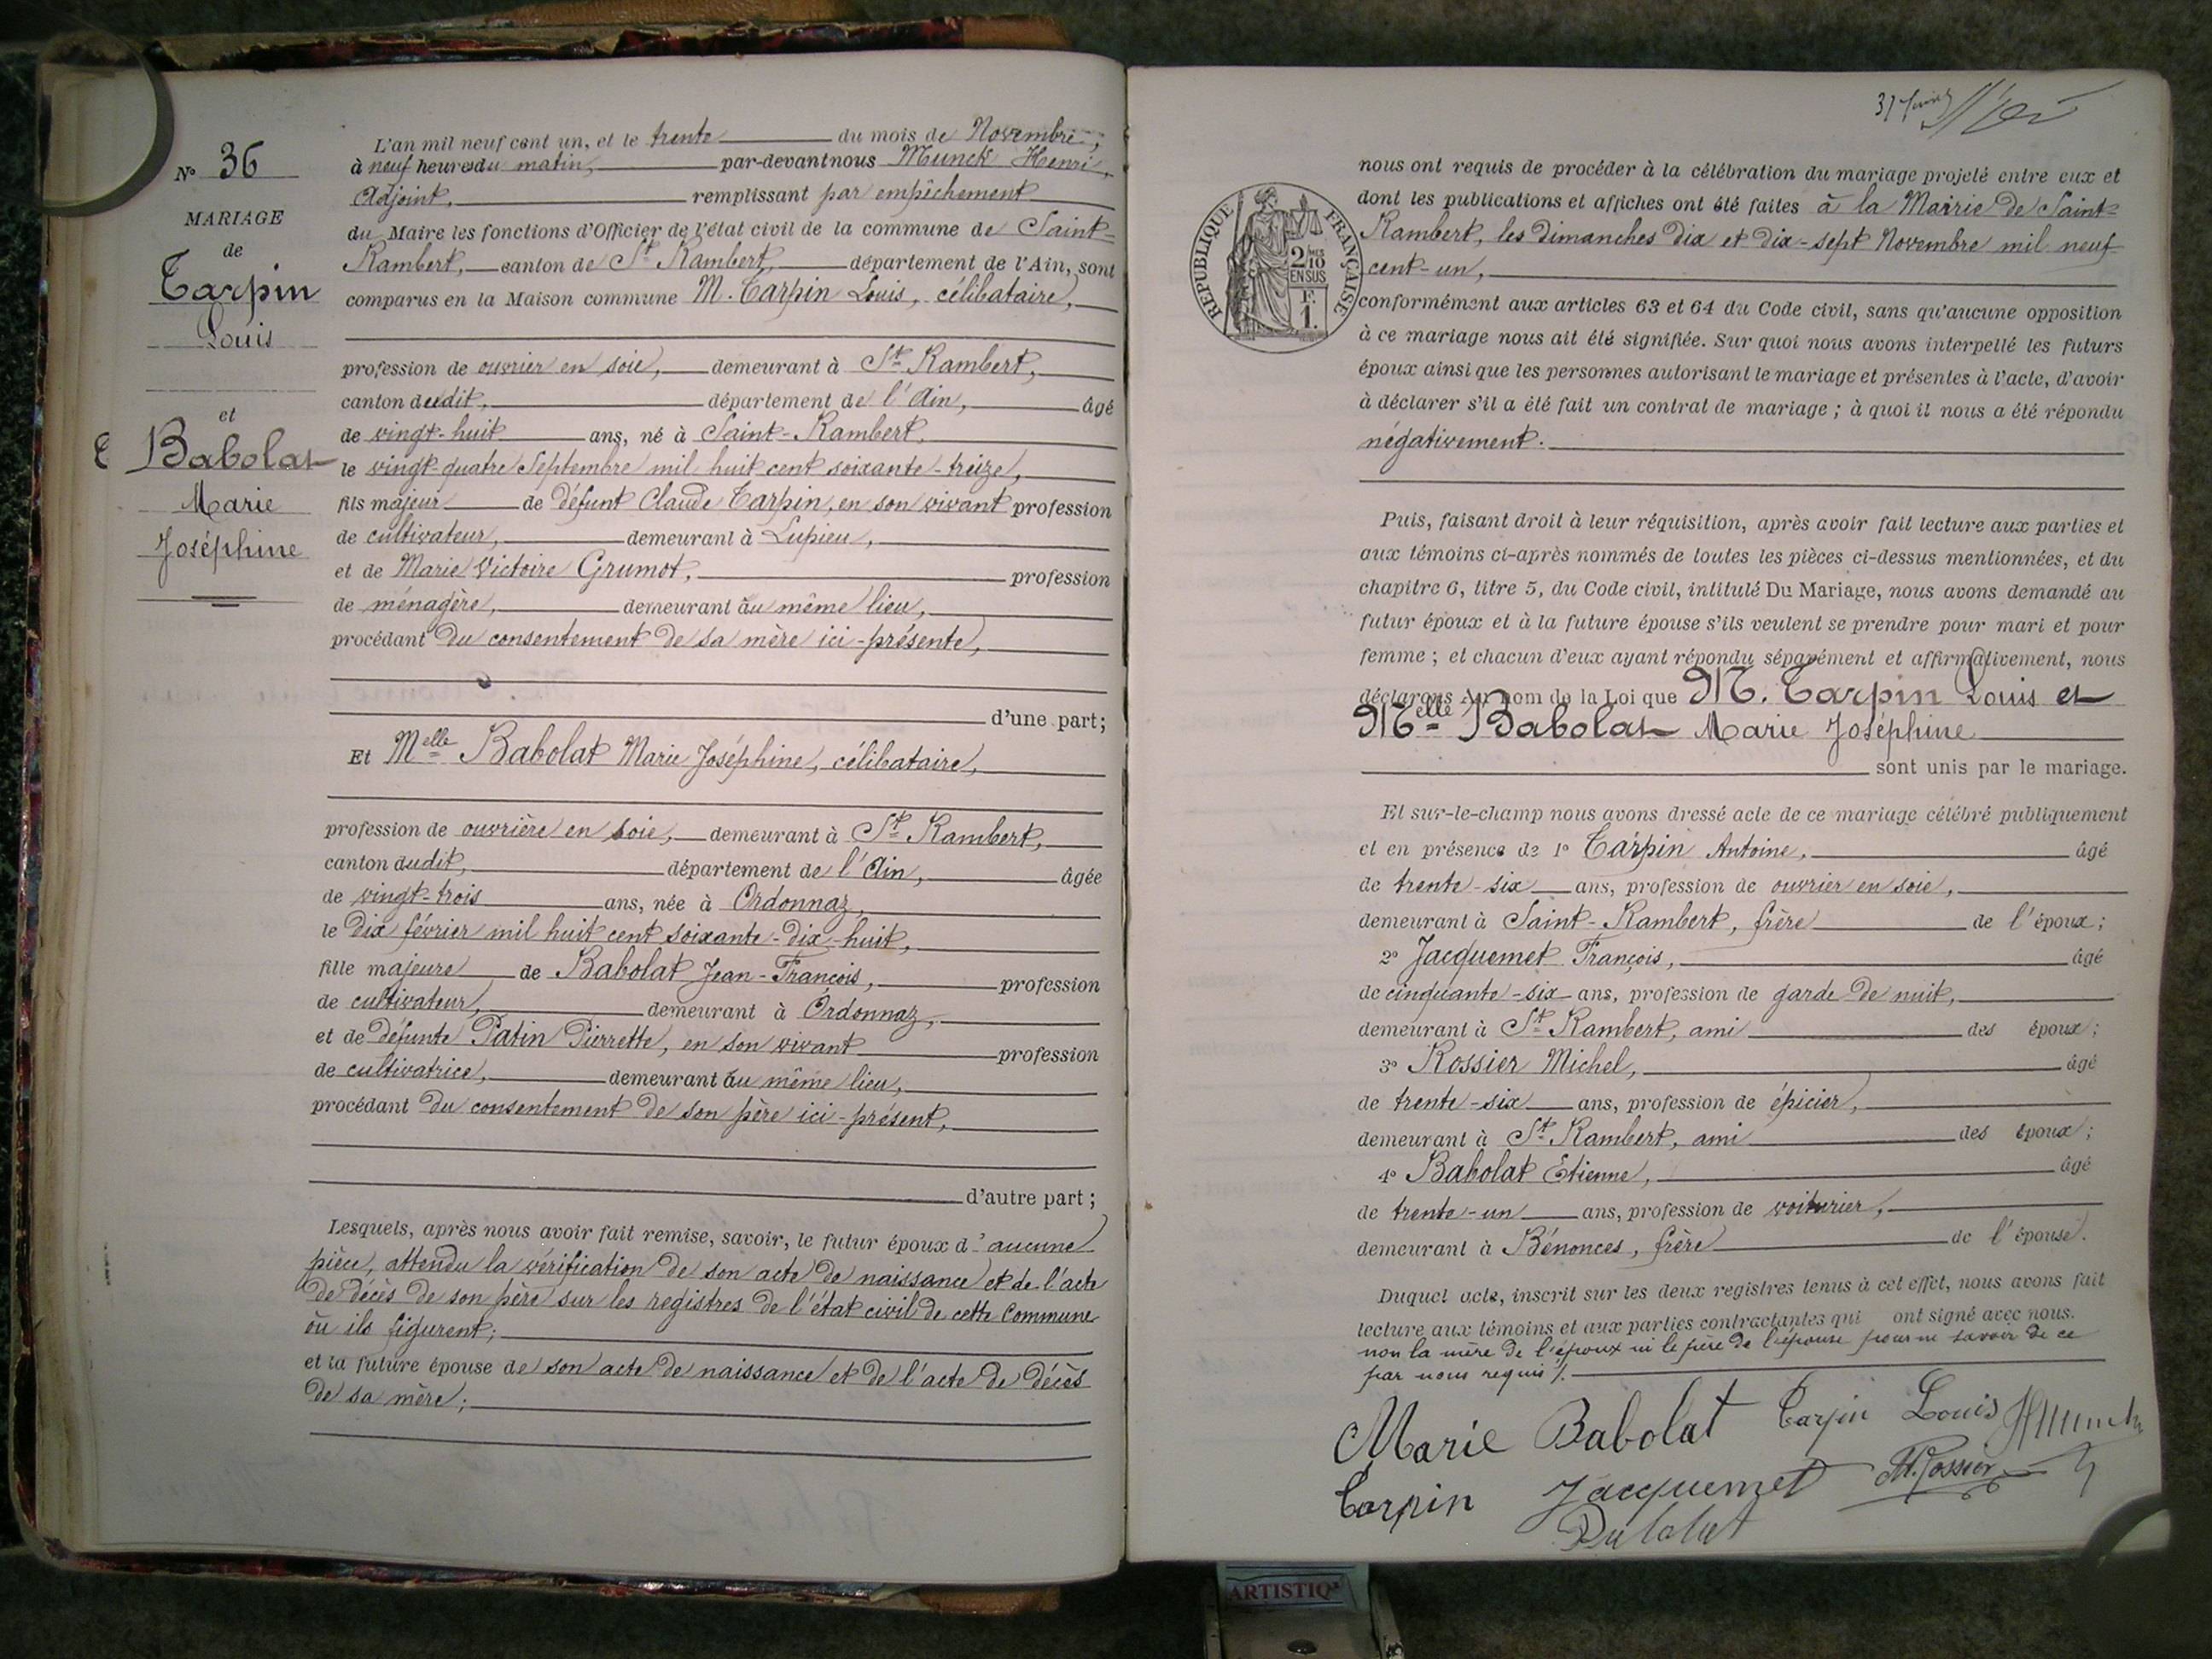 N° 36
MARIAGE
de
Tarpin
Louis
et
Babolat
Marie
Joséphine
L'an mil neuf cent un, et le trente du mois de Novembre,
à neuf heures du matin, par-devant nous Munck Henri,
Adjoint, remplissant par empêchement
du Maire les fonctions d'Officier de l'état civil de la commune de Saint-
Rambert, canton de St Rambert, département de l'Ain, sont
comparus en la Maison commune M. Tarpin Louis, célibataire,
profession de ouvrier en soie, demeurant à St Rambert,
canton dudit, département de l'Ain, âgé
de vingt-huit ans, né à Saint-Rambert,
le vingt-quatre Septembre mil huit cent soixante-treize,
fils majeur de défunt Claude Tarpin, en son vivant profession
de cultivateur, demeurant à Lupieu,
et de Marie Victoire Grumot, profession
de ménagère, demeurant au même lieu,
procédant du consentement de sa mère ici-présente,
d'une part;
Et Melle Babolat Marie Joséphine, célibataire,
profession de ouvrière en soie, demeurant à St Rambert,
canton dudit, département de l'Ain, âgée
de vingt-trois ans, née à Ordonnaz,
le dix février mil huit cent soixante-dix-huit,
fille majeure de Babolat Jean-François, profession
de cultivateur, demeurant à Ordonnaz,
et de défunte Patin Pierrette, en son vivant profession
de cultivatrice, demeurant au même lieu,
procédant du consentement de son père ici-présent,
d'autre part;
Lesquels, après nous avoir fait remise, savoir, le futur époux d'aucune
pièce, attendu la vérification de son acte de naissance et de l'acte
de décès de son père sur les registres de l'état civil de cette Commune
où ils figurent;
et la future épouse de son acte de naissance et de l'acte de décès
de sa mère;
REPUBLIQUE FRANÇAISE
2 10
EN SUS
F.
1.
nous ont requis de procéder à la célébration du mariage projeté entre eux et
dont les publications et affiches ont été faites à la Mairie de Saint-
Rambert, les dimanches dix et dix-sept Novembre mil neuf
cent-un,
conformément aux articles 63 et 64 du Code civil, sans qu'aucune opposition
à ce mariage nous ait été signifiée. Sur quoi nous avons interpellé les futurs
époux ainsi que les personnes autorisant le mariage et présentes à l'acte, d'avoir
à déclarer s'il a été fait un contrat de mariage; à quoi il nous a été répondu
négativement.
Puis, faisant droit à leur réquisition, après avoir fait lecture aux parties et
aux témoins ci-après nommés de toutes les pièces ci-dessus mentionnées, et du
chapitre 6, titre 5, du Code civil, intitulé Du Mariage, nous avons demandé au
futur époux et à la future épouse s'ils veulent se prendre pour mari et pour
femme; et chacun d'eux ayant répondu séparément et affirmativement, nous
déclarons Au nom de la Loi que M. Tarpin Louis et
Melle Babolat Marie Joséphine
sont unis par le mariage.
Et sur-le-champ nous avons dressé acte de ce mariage célébré publiquement
et en présence de 1° Tarpin Antoine, âgé
de trente-six ans, profession de ouvrier en soie,
demeurant à Saint-Rambert, frère de l'époux;
2° Jacquemet François, âgé
de cinquante-six ans, profession de garde de nuit,
demeurant à St Rambert, ami des époux;
3° Rossier Michel, âgé
de trente-six ans, profession de épicier,
demeurant à St Rambert, ami des époux;
4° Babolat Etienne, âgé
de trente-un ans, profession de voiturier,
demeurant à Bénonces, frère de l'épouse.
Duquel acte, inscrit sur les deux registres tenus à cet effet, nous avons fait
lecture aux témoins et aux parties contractantes qui ont signé avec nous.
non la mère de l'époux ni le père de l'épouse pour ne savoir de ce
par nous requis /.
Marie Babolat Tarpin Louis HMunck
Tarpin Jacquemet M. Rossier
Babolat
ARTISTIQ